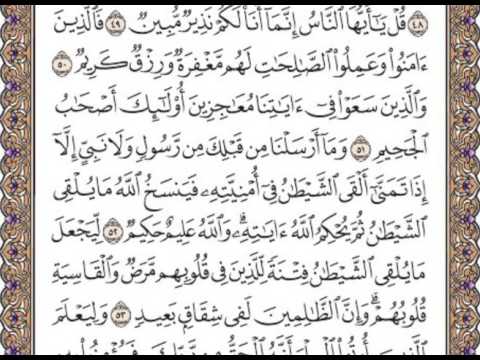 ٤٨ قُلْ يَٰٓأَيُّهَا ٱلنَّاسُ إِنَّمَآ أَنَا۠ لَكُمْ نَذِيرٌ مُّبِينٌ ٤٩ فَٱلَّذِينَ
ءَامَنُوا۟ وَعَمِلُوا۟ ٱلصَّٰلِحَٰتِ لَهُم مَّغْفِرَةٌ وَرِزْقٌ كَرِيمٌ ٥٠
وَٱلَّذِينَ سَعَوْا۟ فِىٓ ءَايَٰتِنَا مُعَٰجِزِينَ أُو۟لَٰٓئِكَ أَصْحَٰبُ
ٱلْجَحِيمِ ٥١ وَمَآ أَرْسَلْنَا مِن قَبْلِكَ مِن رَّسُولٍ وَلَا نَبِىٍّ إِلَّآ
إِذَا تَمَنَّىٰٓ أَلْقَى ٱلشَّيْطَٰنُ فِىٓ أُمْنِيَّتِهِۦ فَيَنسَخُ ٱللَّهُ مَا يُلْقِى
ٱلشَّيْطَٰنُ ثُمَّ يُحْكِمُ ٱللَّهُ ءَايَٰتِهِۦ ۗ وَٱللَّهُ عَلِيمٌ حَكِيمٌ ٥٢ لِّيَجْعَلَ
مَا يُلْقِى ٱلشَّيْطَٰنُ فِتْنَةً لِّلَّذِينَ فِى قُلُوبِهِم مَّرَضٌ وَٱلْقَاسِيَةِ
قُلُوبُهُمْ ۗ وَإِنَّ ٱلظَّٰلِمِينَ لَفِى شِقَاقٍۭ بَعِيدٍ ٥٣ وَلِيَعْلَمَ